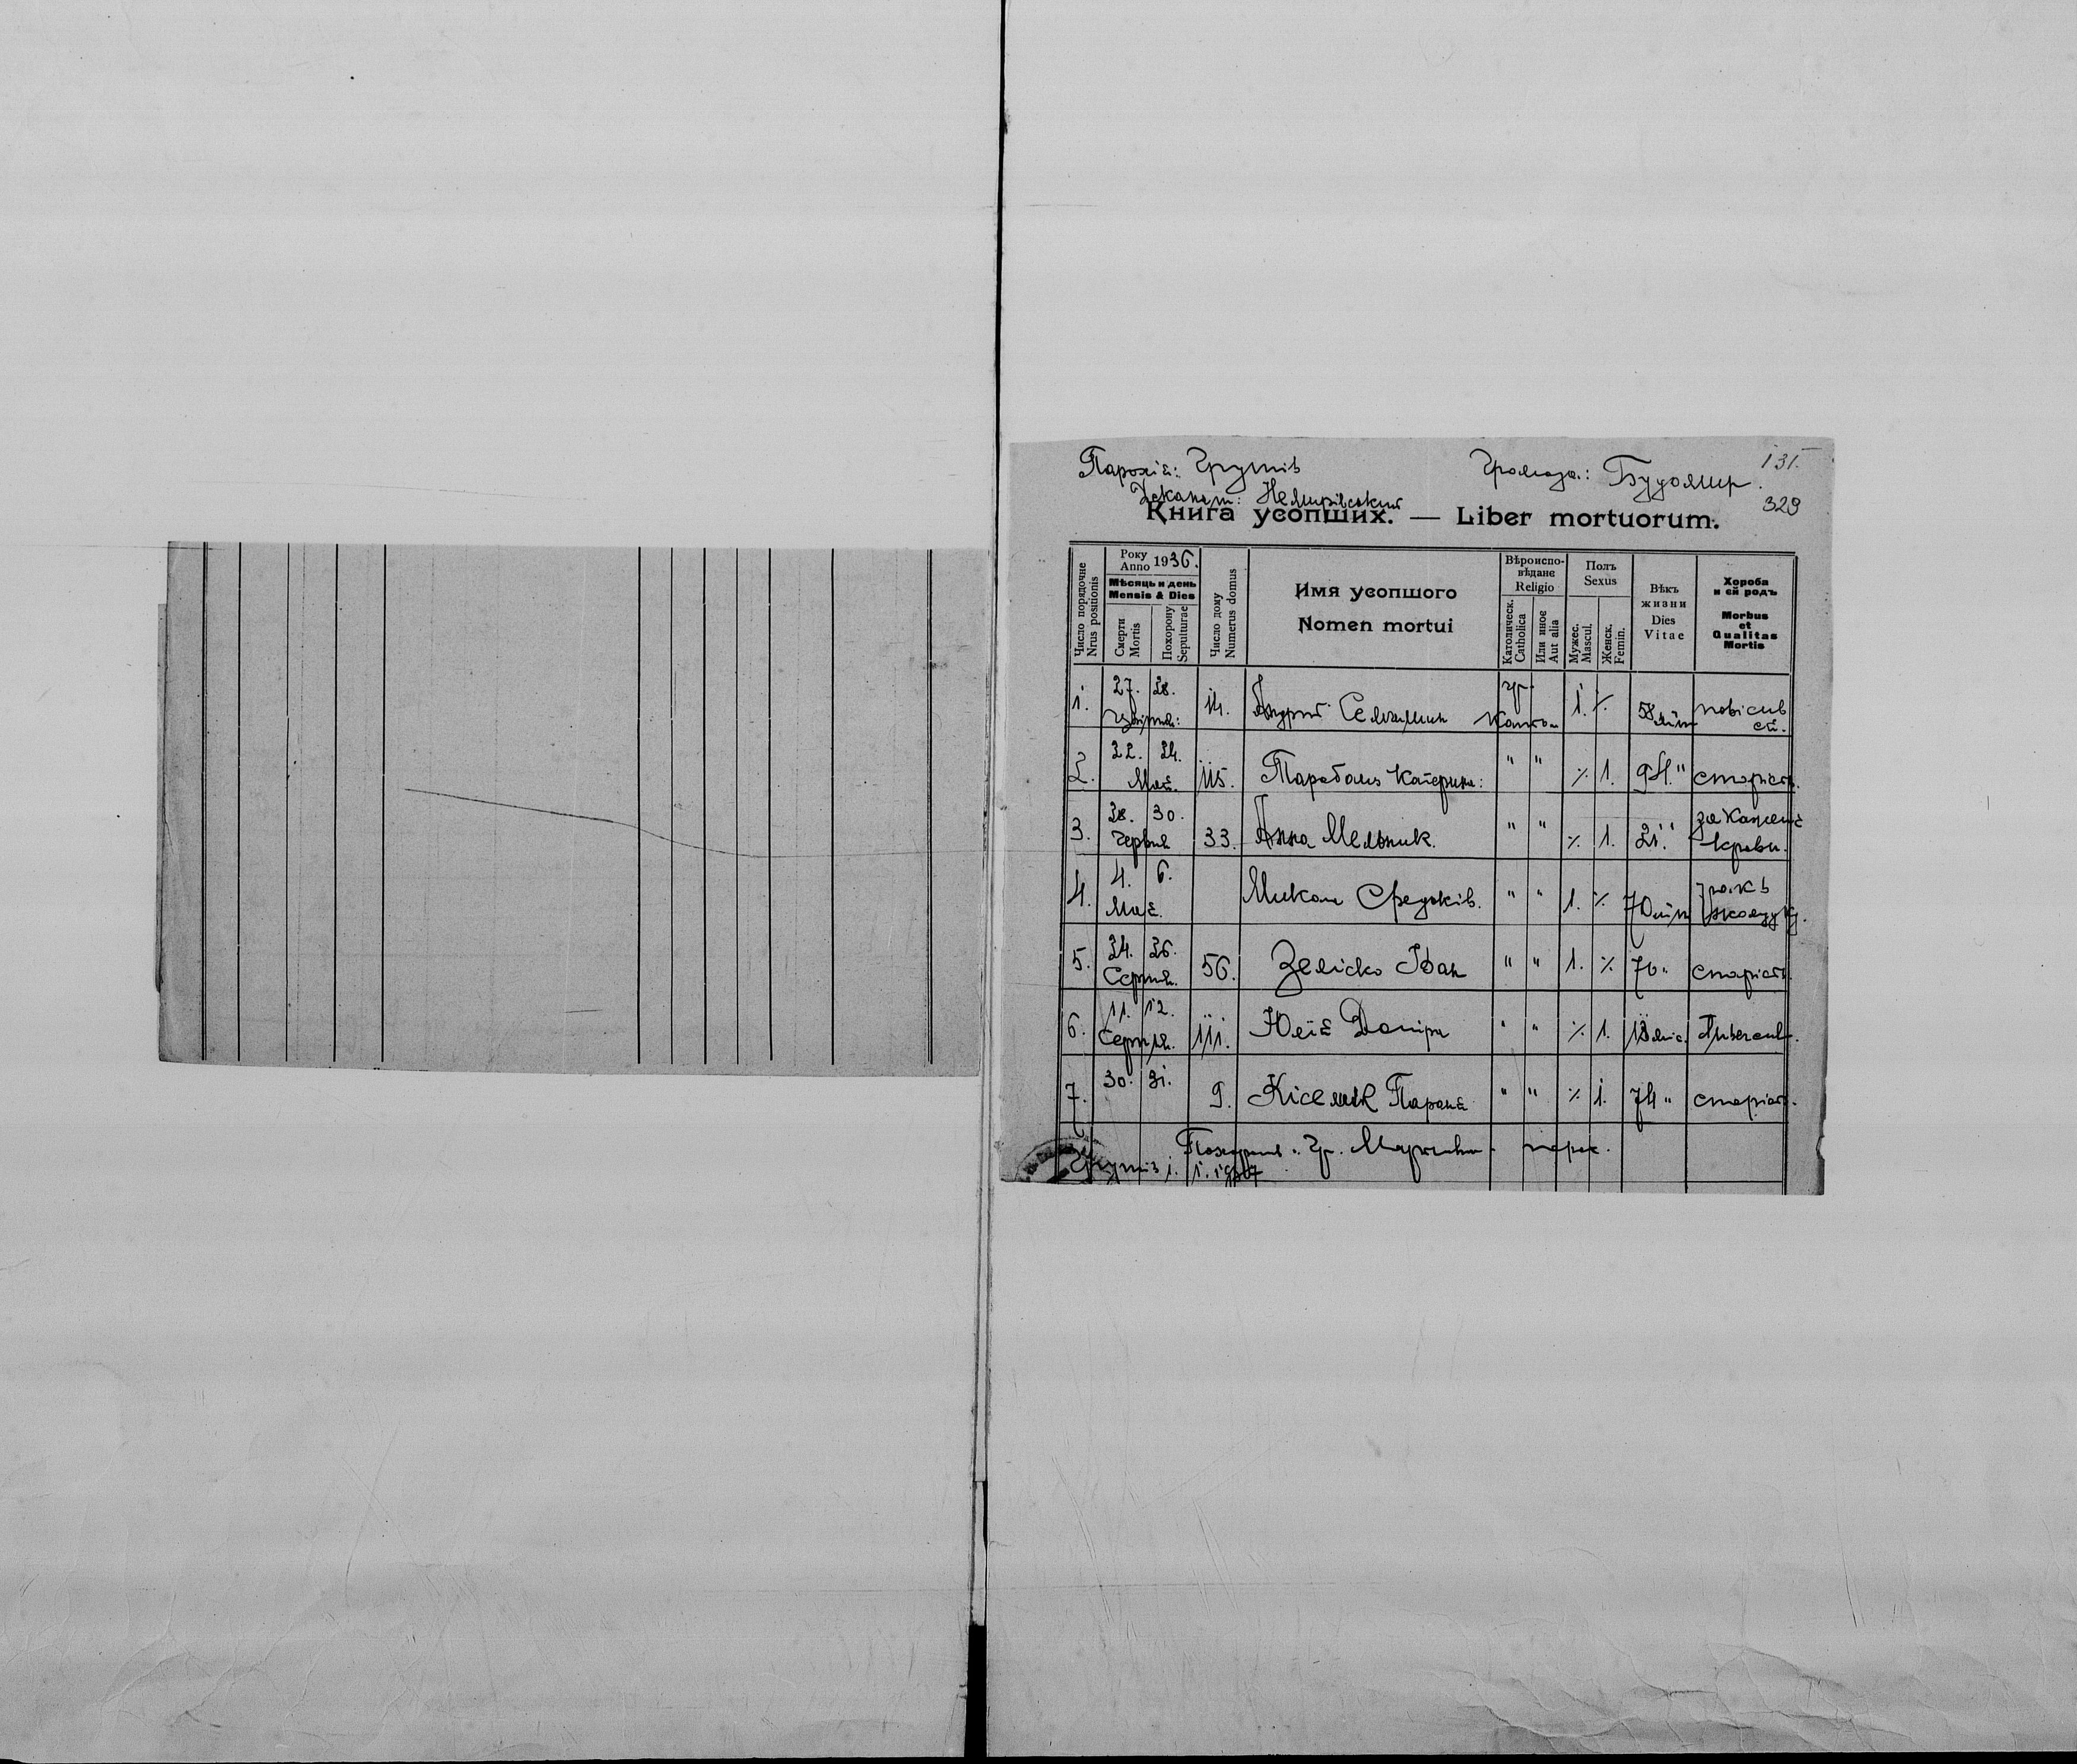 Парохія: Грушів Громада: Будомир. 131.
Деканат: Немирівський 329
Книга усопших. — Liber mortuorum.
Число порядочне Nrus positionis
Року Anno 1936.
Мѣсяць и день Mensis & Dies
Смерти Mortis
Похорону Sepulturae
Число дому Numerus domus
Имя усопшого
Nomen mortui
Вѣроиспо-
вѣдане
Religio
Католическ. Catholica
Или иное Aut alia
Полъ
Sexus
Мужес. Mascul.
Женск. Femin.
Вѣкъ
жизни
Dies
Vitae
Хороба
и єй родъ
Morbus
et
Qualitas
Mortis
1. 27. 28. 14. Андрій гр. 1. ٪ 58 літ повісив
ся.
2. 22. 24. Мая. 115. Катерина: " " ٪ 1. 94. " старість.
3. 28. 30. Червня 33. Анна Мельник. " " ٪ 1. 21. " закаженє
крови.
4. 4. 6. Мая. Микола " " 1. ٪ 70 літ рак
жолудку.
5. 24. 26. Серпня. 56. Зеліско Іван " " 1. ٪ 70 " старість.
6. 11. 12. Серпня. 111. Юлія " " ٪ 1. 18 міс. Tubercul.
7. 30. 31. 9. Параня " " ٪ 1. 74 " старість.
парох.
Грушів 1. 1. 1937